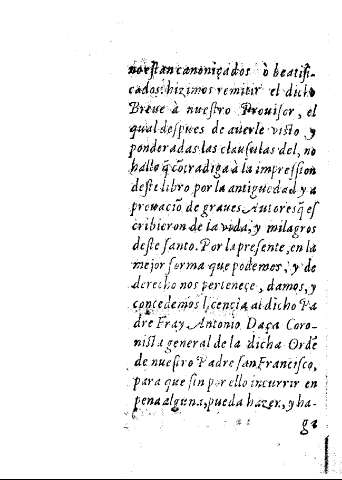 no estan canoniçados ò beatifi-
cados: hizimos remitir el dicho
Breue à nuestro Prouisor, el
qual despues de auerle visto, y
ponderadas las clausulas del, no
hallo q̃ cõtradiga à la impression
deste libro por la antiguedad y a
prouaciõ de graues Autores q̃ es
cribieron de la vida, y milagros
deste santo. Por la presente, en la
mejor forma que podemos, y de
derecho nos perteneçe, damos, y
concedemos liçençia al dicho Pa
dre Fray Antonio Daça Coro-
nista general de la dicha Ordẽ
de nuestro Padre san Francisco,
para que sin por ello incurrir en
pena alguna, pueda hazer, y ha-
ga